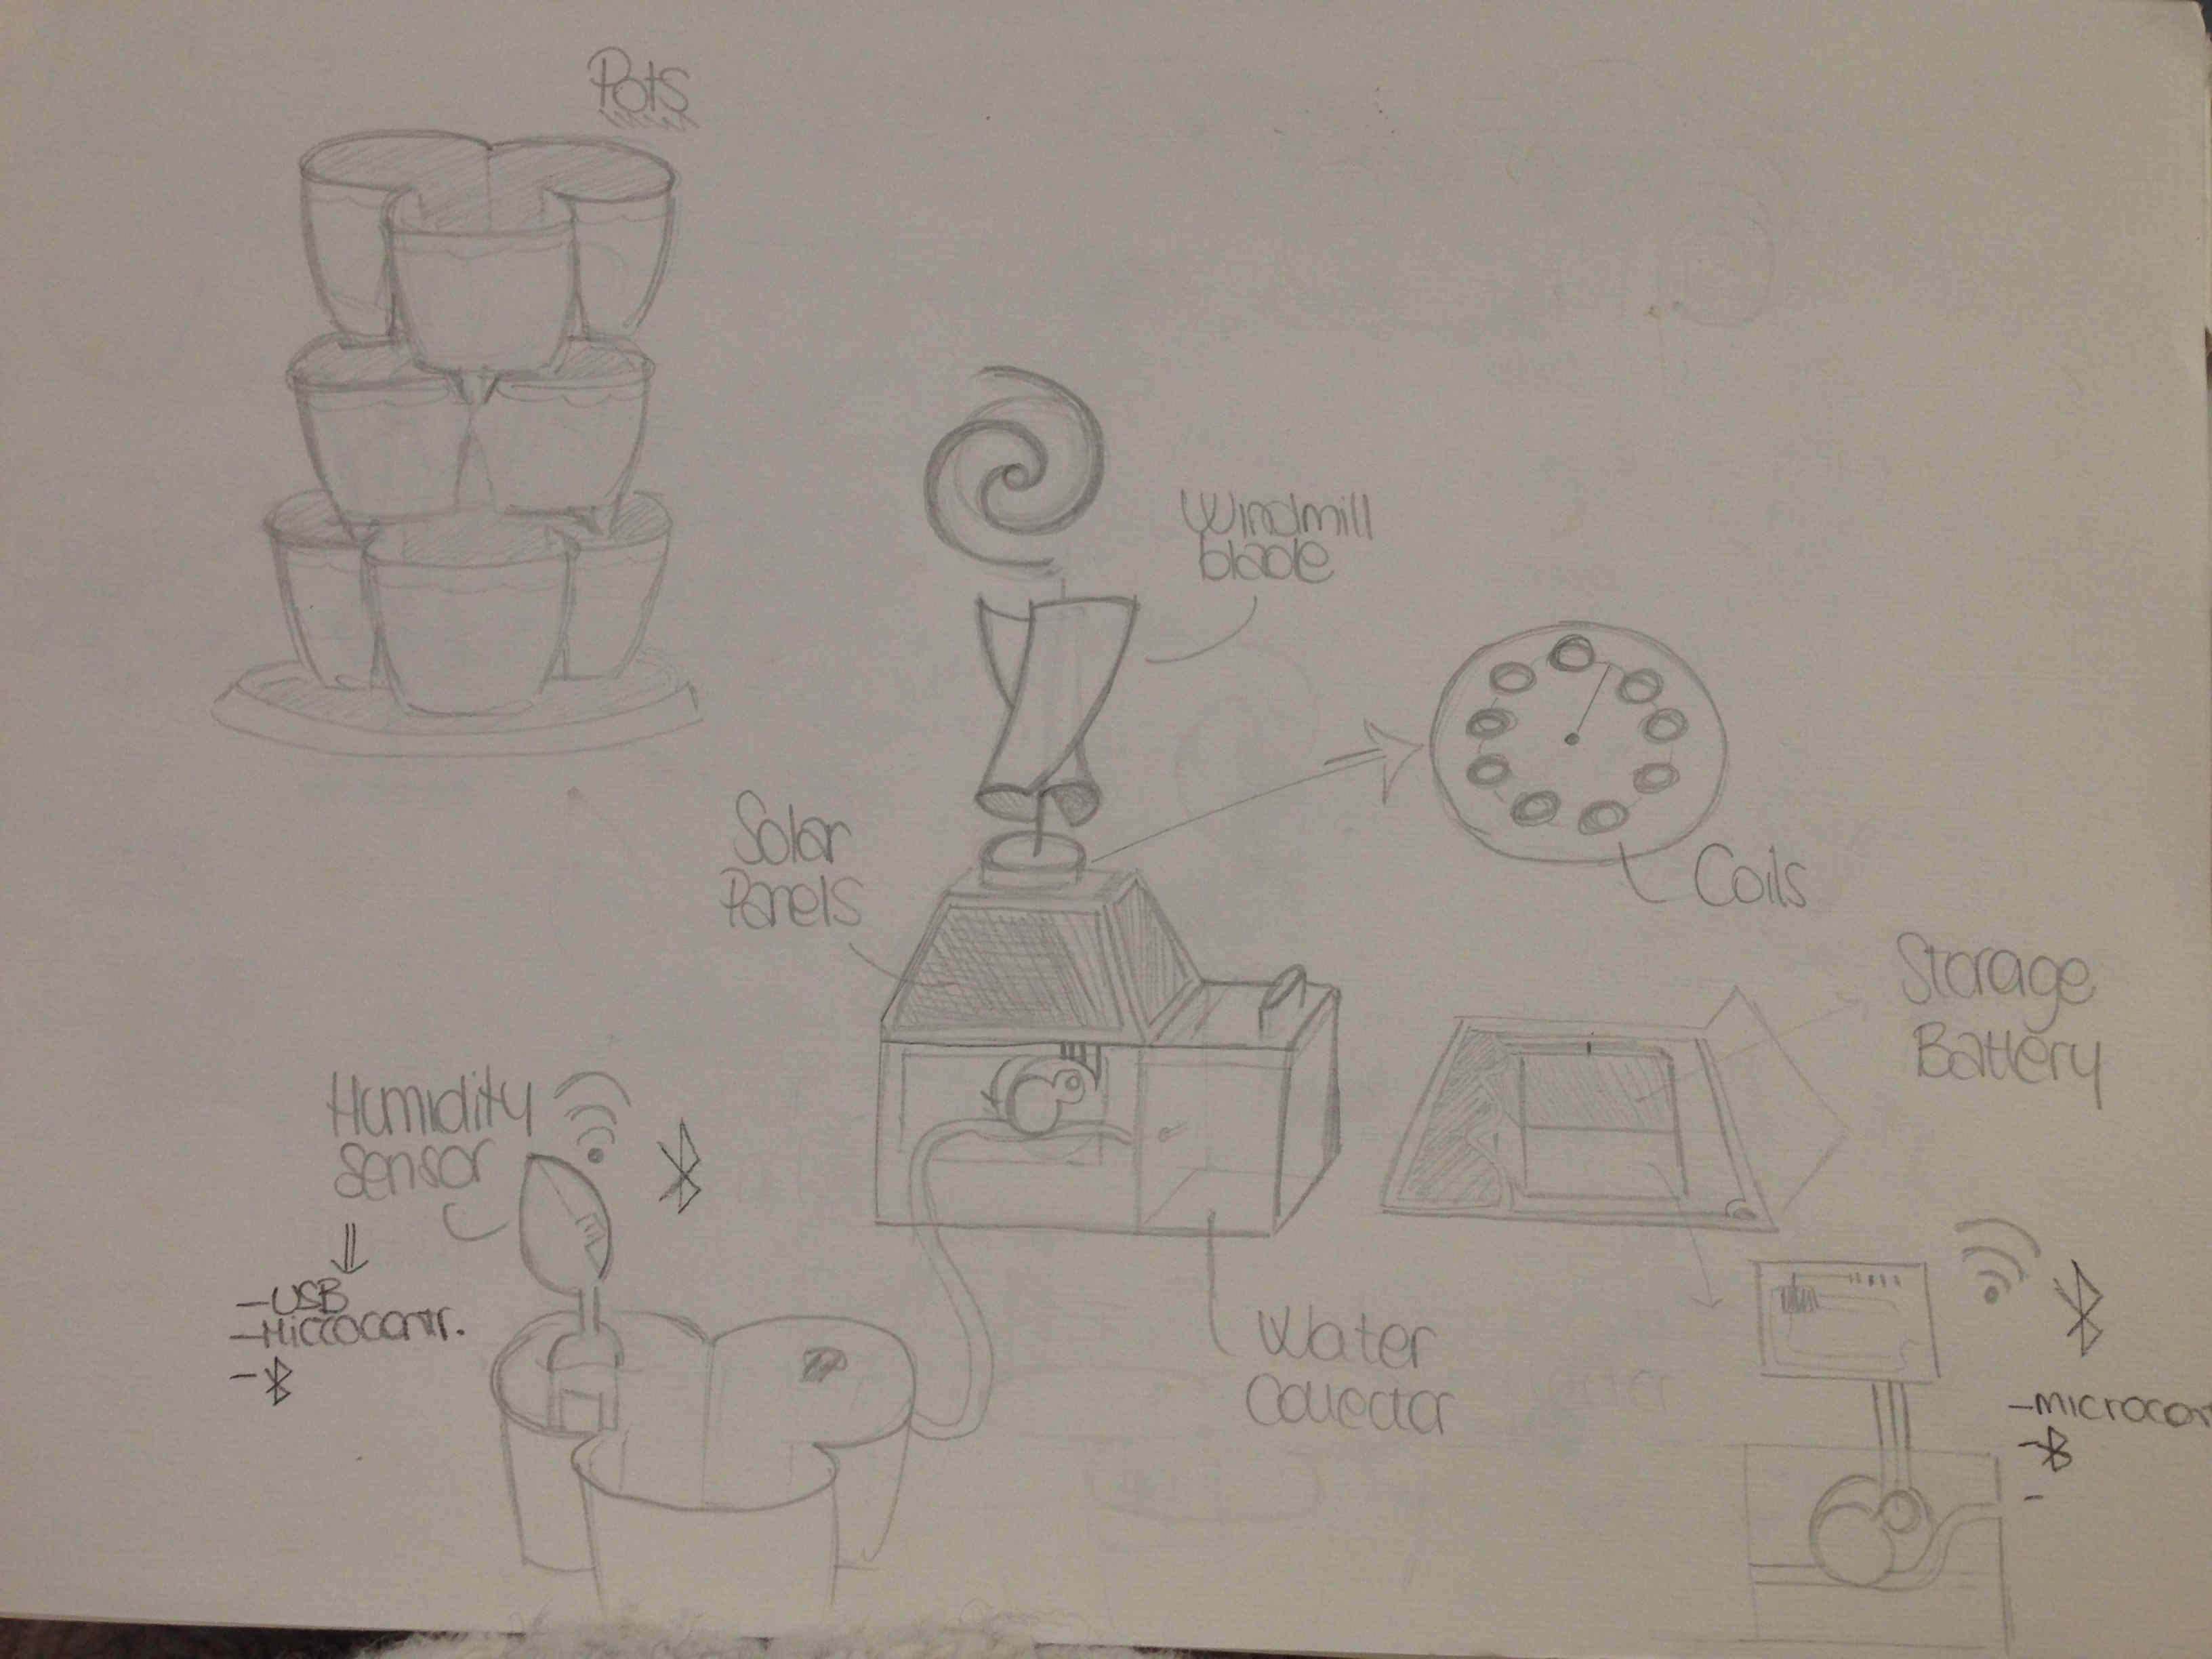 Pots
Windmill
blade
Coils
Solar
Panels
Storage
Battery
Humidity
sensor
-USB
-Microcontr.
Water
Collector
-microcon